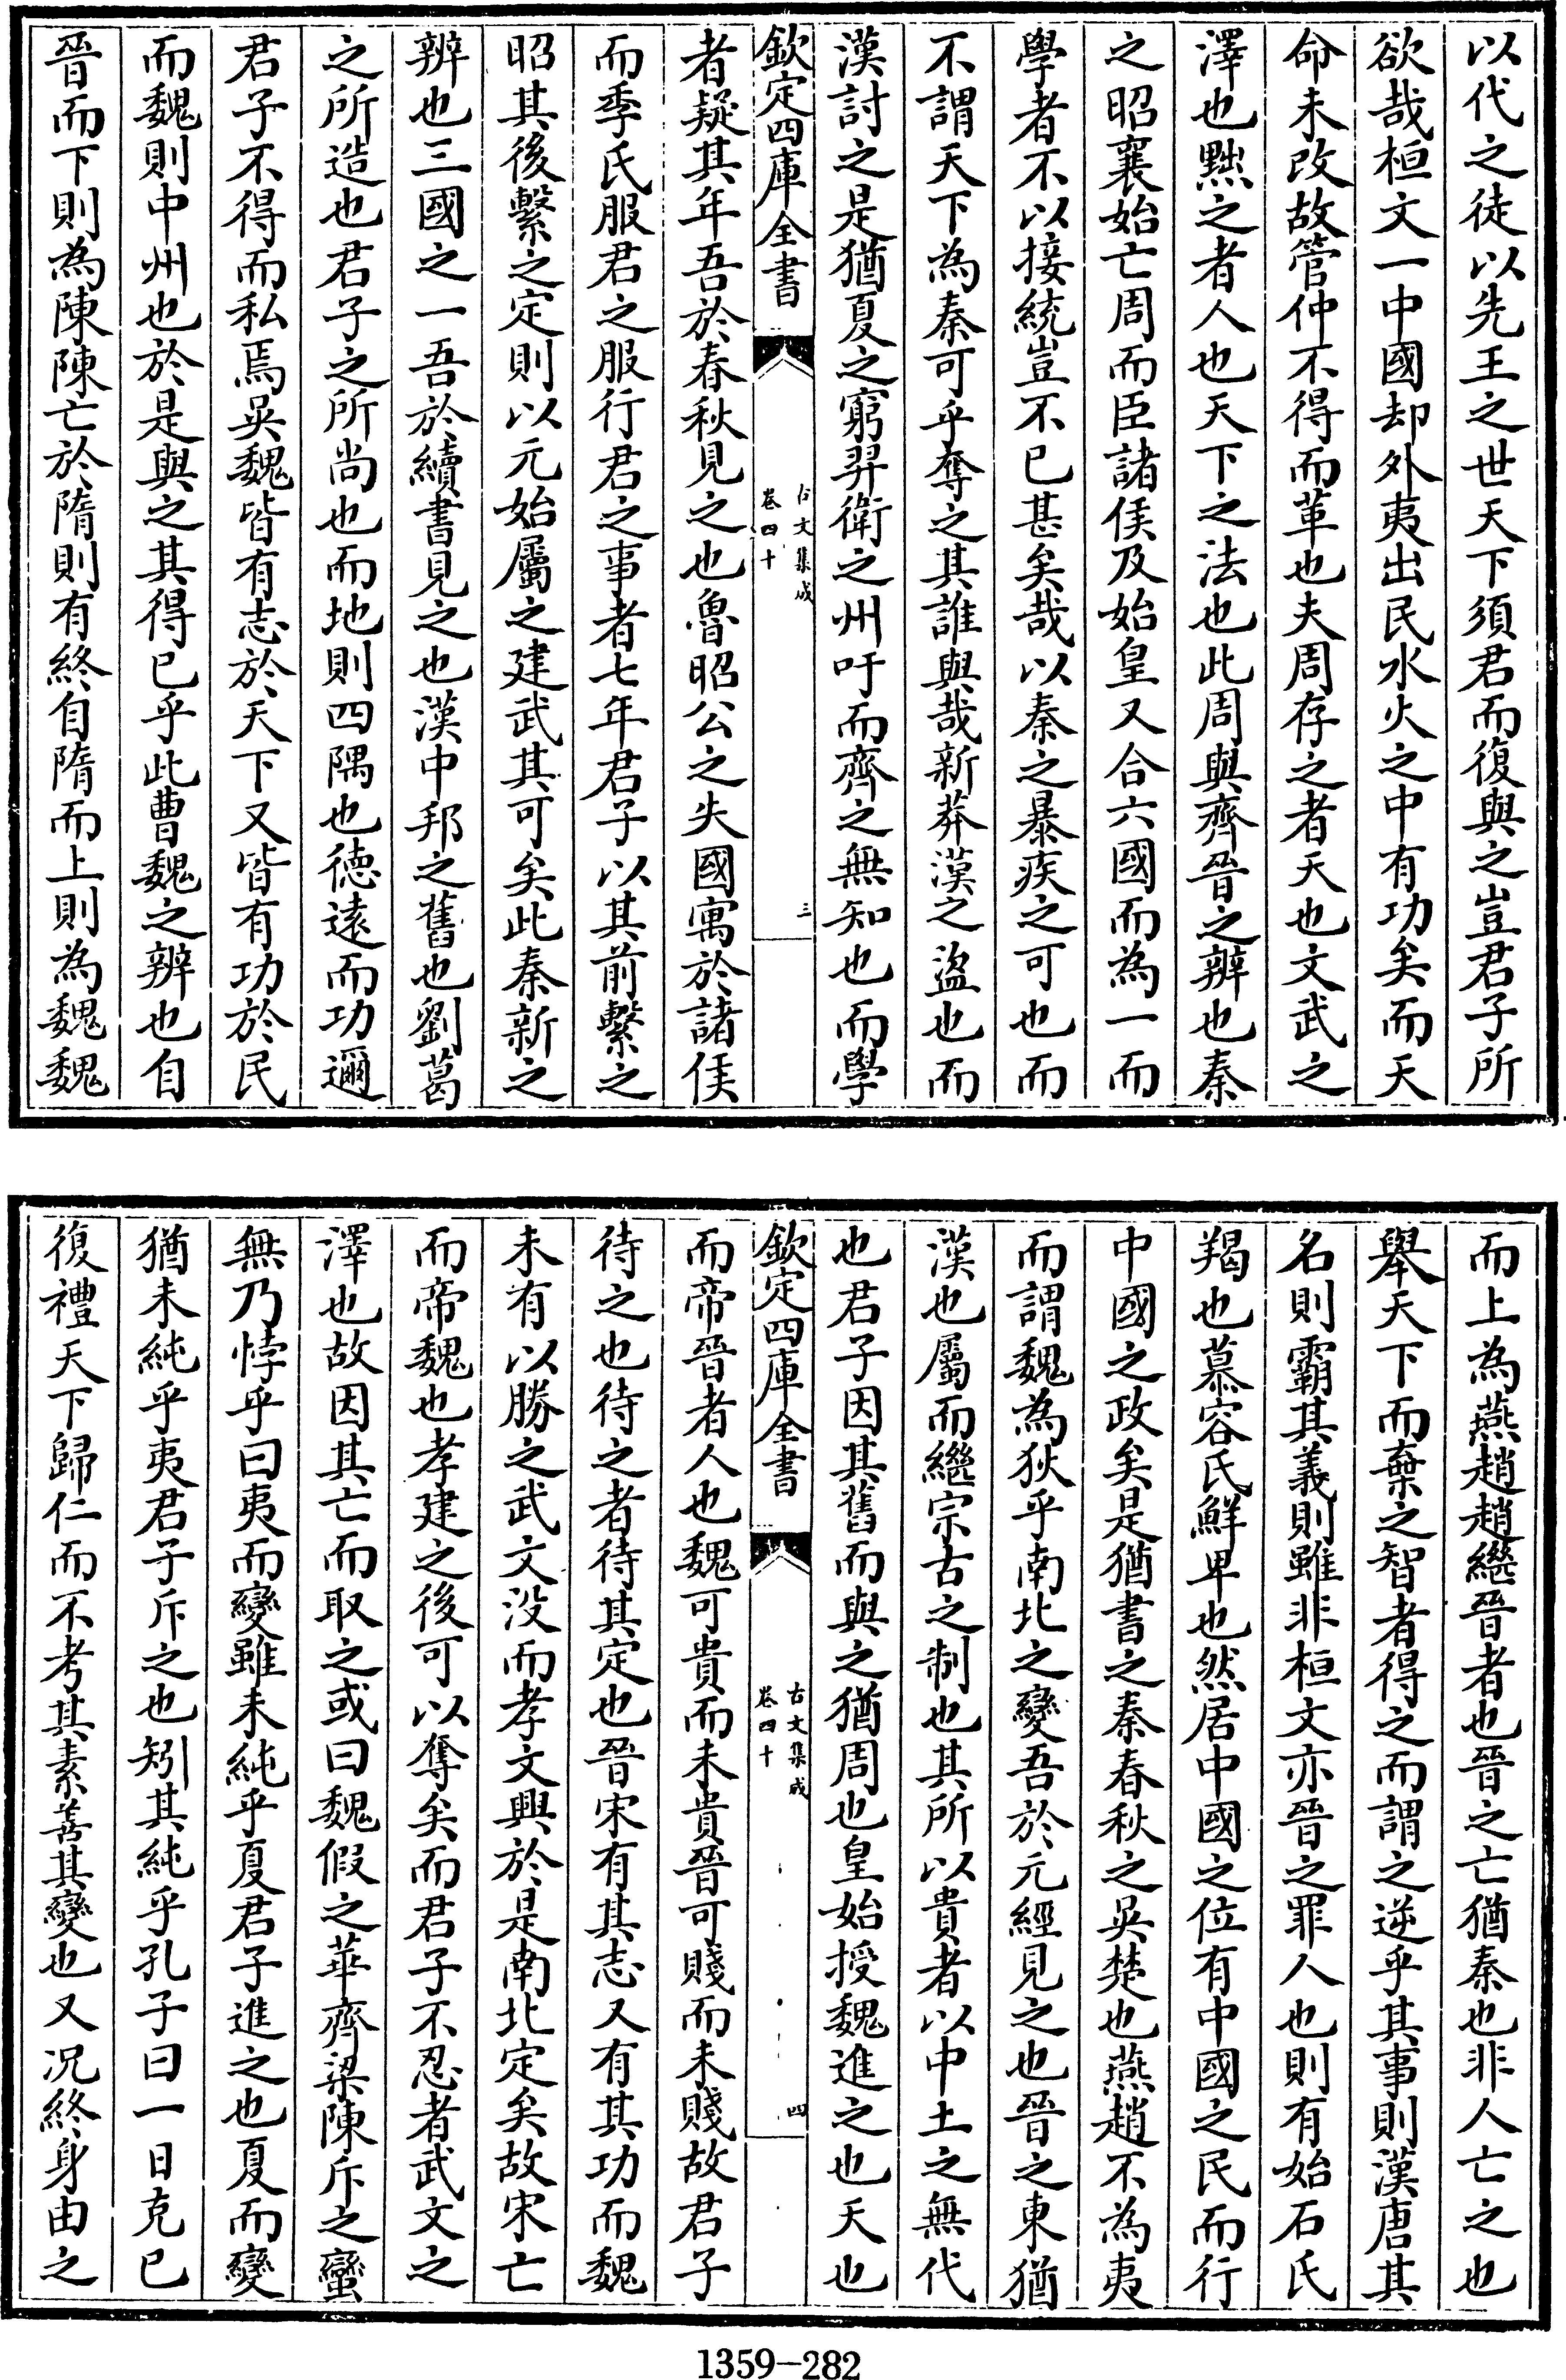 以代之徒以先王之世天下須君而復與之豈君子所
欲哉桓文一中國却外夷出民水火之中有功矣而天
命未改故管仲不得而革也夫周存之者天也文武之
澤也黜之者人也天下之法也此周與齊晉之辨也秦
之昭襄始亡周而臣諸侯及始皇又合六國而為一而
學者不以接統豈不已甚矣哉以秦之暴疾之可也而
不謂天下為秦可乎奪之其誰與哉新莽漢之盜也而
漢討之是猶夏之窮羿衛之州吁而齊之無知也而學
欽定四庫全書
古文集成
卷四十
三
者疑其年吾於春秋見之也魯昭公之失國寓於諸侯
而季氏服君之服行君之事者七年君子以其前繫之
昭其後繫之定則以元始屬之建武其可矣此秦新之
辨也三國之一吾於續書見之也漢中邦之舊也劉葛
之所造也君子之所尚也而地則四隅也德遠而功邇
君子不得而私焉吳魏皆有志於天下又皆有功於民
而魏則中州也於是與之其得已乎此曹魏之辨也自
晉而下則為陳陳亡於隋則有終自隋而上則為魏魏
而上為燕趙趙繼晉者也晉之亡猶秦也非人亡之也
舉天下而棄之智者得之而謂之逆乎其事則漢唐其
名則霸其義則雖非桓文亦晉之罪人也則有始石氏
羯也慕容氏鮮卑也然居中國之位有中國之民而行
中國之政矣是猶書之秦春秋之吳楚也燕趙不為夷
而謂魏為狄乎南北之變吾於元經見之也晉之東猶
漢也屬而繼宗古之制也其所以貴者以中土之無代
也君子因其舊而與之猶周也皇始授魏進之也天也
欽定四庫全書
古文集成
卷四十
四
而帝晉者人也魏可貴而未貴晉可賤而未賤故君子
待之也待之者待其定也晉宋有其志又有其功而魏
未有以勝之武文没而孝文興於是南北定矣故宋亡
而帝魏也孝建之後可以奪矣而君子不忍者武文之
澤也故因其亡而取之或曰魏假之華齊梁陳斥之蠻
無乃悖乎曰夷而變雖未純乎夏君子進之也夏而變
猶未純乎夷君子斥之也矧其純乎孔子曰一日克已
復禮天下歸仁而不考其素善其變也又况終身由之
1359-282